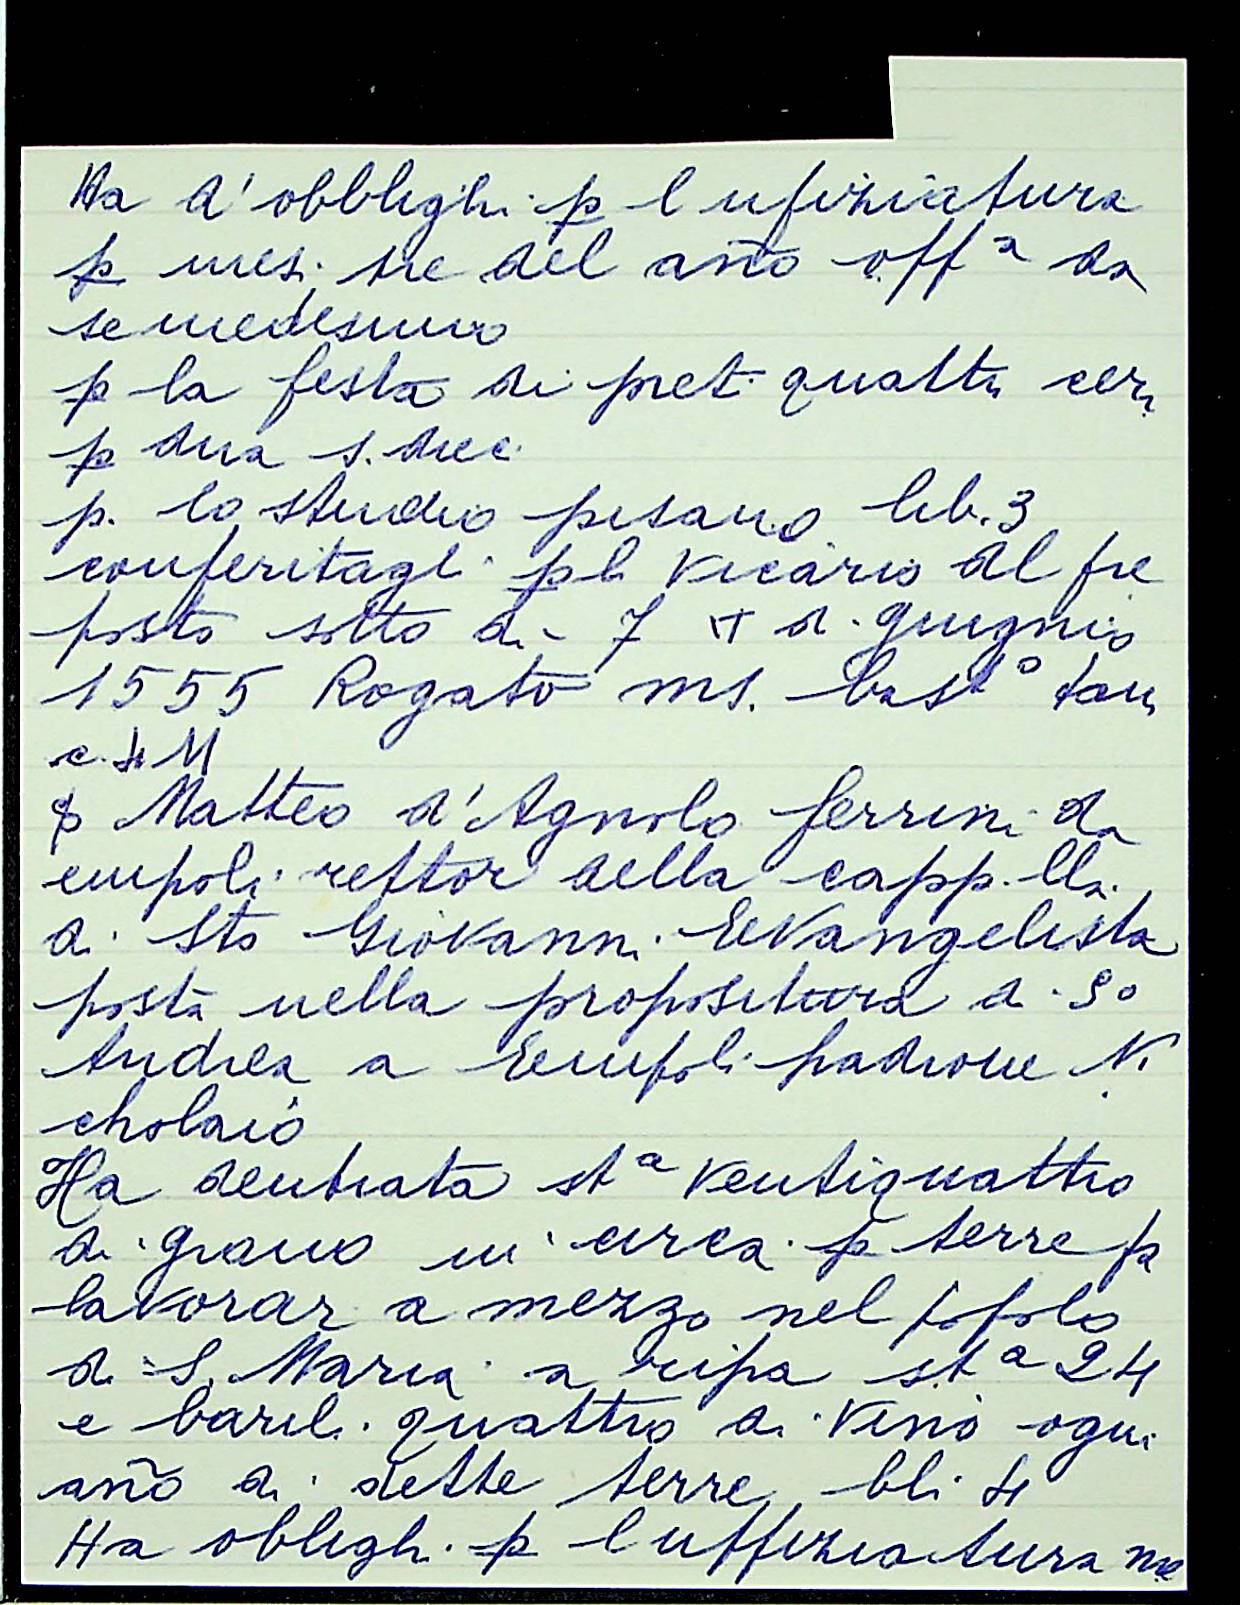 Ha d'obblighi p l ufiziatura
p mesi tre del año offª da
se medesimo
p la festa di preti quattr cer,
p dua s. dieci
p. lo studio pisano lib. 3
conferitagli pl Vicario al pre
posto sotto di - 7 di giugnio
1555 Rogato ms. bastº
c. 4 M
Matteo d'Agnolo ferrini da
empoli rettor della capp.lla
di Sto Giovanni Evangelista
posta nella propositura di So
Andrea a Empoli padrone Ni
cholaio
Ha dentrata stª Ventiquattro
di grano in circa p terre fa
lavorar a mezzo nel popolo
di S. Maria a ripa stª 24
e barili quattro di Vino ogni
año di dette terre bli 4
Ha oblighi p l uffiziatura me